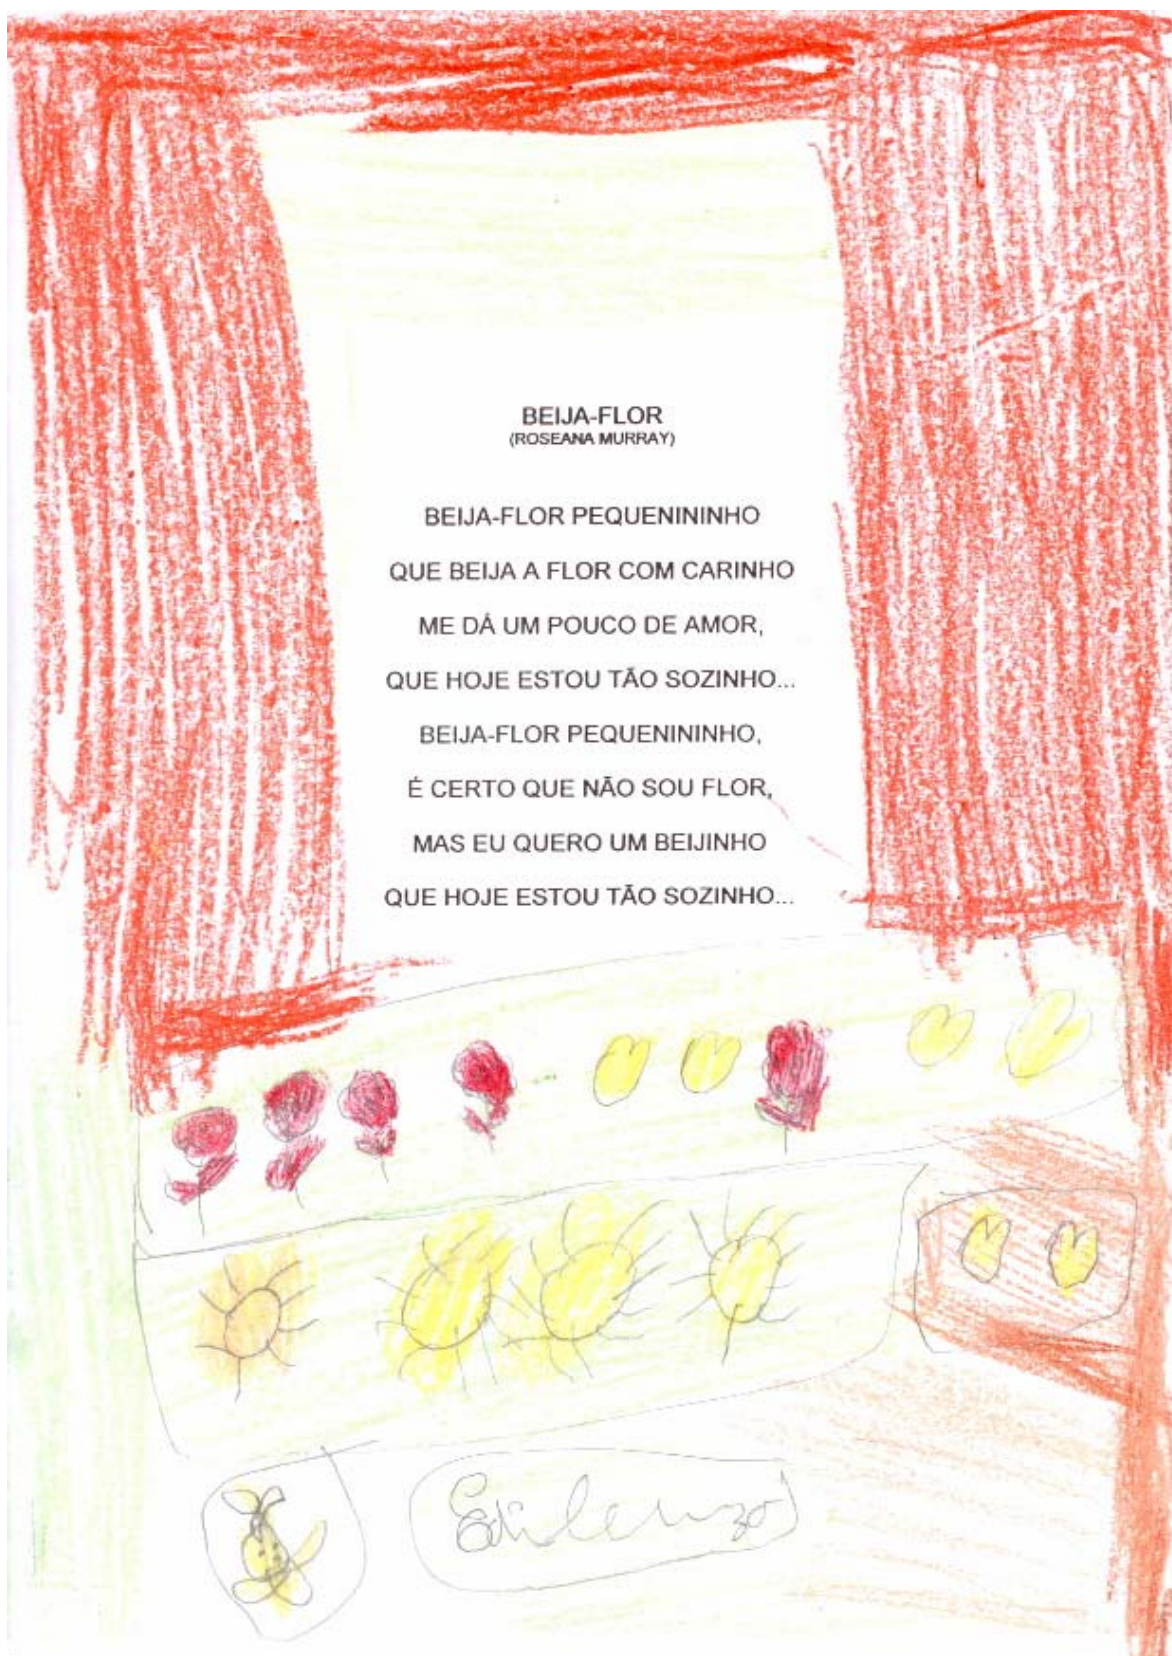 BEIJA-FLOR
(ROSEANA MURRAY)
BEIJA-FLOR PEQUENININHO
QUE BEIJA A FLOR COM CARINHO
ME DÁ UM POUCO DE AMOR,
QUE HOJE ESTOU TÃO SOZINHO...
BEIJA-FLOR PEQUENININHO,
É CERTO QUE NÃO SOU FLOR,
MAS EU QUERO UM BEIJINHO
QUE HOJE ESTOU TÃO SOZINHO...